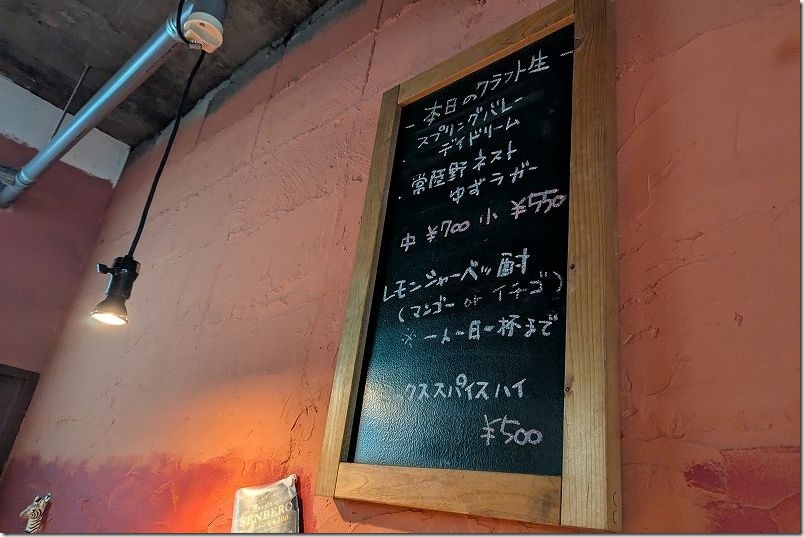 - 本日のクラフト生 -
・スプリングバレー
デイドリーム
・常陸野ネスト
ゆずラガー
中 ¥700 小 ¥550
レモンシャーベッ酎
(マンゴー or イチゴ)
※一人一日一杯まで
クススパイスハイ
¥500
SENBERO